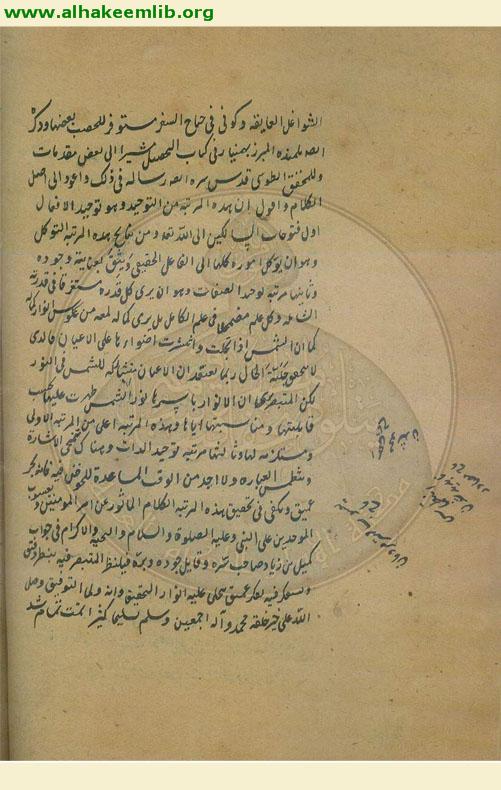 www.alhakeemlib.org
الشواغل العايقه وكونى فى جناح السفر مستوفز للحصب بعضها وذكره
تلميذه المبرز بهمنيار فى كتاب التحصيل مشيرا الى بعض مقدمات
وللمحقق الطوسى قدس سره رساله فى ذلك واعود الى اصل
الكلام واقول ان هذه المرتبه من التوحيد وهو توحيد الافعال
اول فتوحات السالكين الى الله تعه ومن نتايج هذه المرتبه التوكل
وهو ان يوكل اموره كلها الى الفاعل الحقيقى ويثق بعنايته وجوده
وثانيها مرتبه توحيد الصفات وهو ان يرى كل قدره مستغرقا فى قدرته
الشامله وكل علم مضمحلا فى علمه الكامل بل يرى كل كمال لمعه من عكوس انوار كماله
كما ان الشمس اذا تجلت وانتشرت اضواءها على الاعيان فالذى
لا يتحقق جلية الحال ربما يعتقد ان الاعيان مشاركه للشمس فى النور
لكن المتبصر يعلم ان الانوار باسرها نور الشمس ظهرت عليها بحسب
قابليتها ومناسبتها اياها وهذه المرتبه اعلى من المرتبه الاولى
ومستلزمه لها وثالثها مرتبه توحيد الذات وهناك تنمحى الاشاره
وتنطمس العباره ولا اجد من الوقت المساعدة للخوض فيه فانه بحر
عميق ويكفى فى تحقيق هذه المرتبه الكلام الماثور عن امير المؤمنين ويعسوب
الموحدين على النبى وعليه الصلوة والسلام والتحيه والاكرام فى جواب
كميل بن زياد صاحب سره وقابل جوده وبره فلينظر المتبصر فيه بنظر دقيق
وليتفكر فيه بفكر عميق يتجلى عليه انوار التحقيق والله ولى التوفيق وصلى
الله على خير خلقه محمد وآله اجمعين وسلم تسليما كثيرا تمت تمام شد